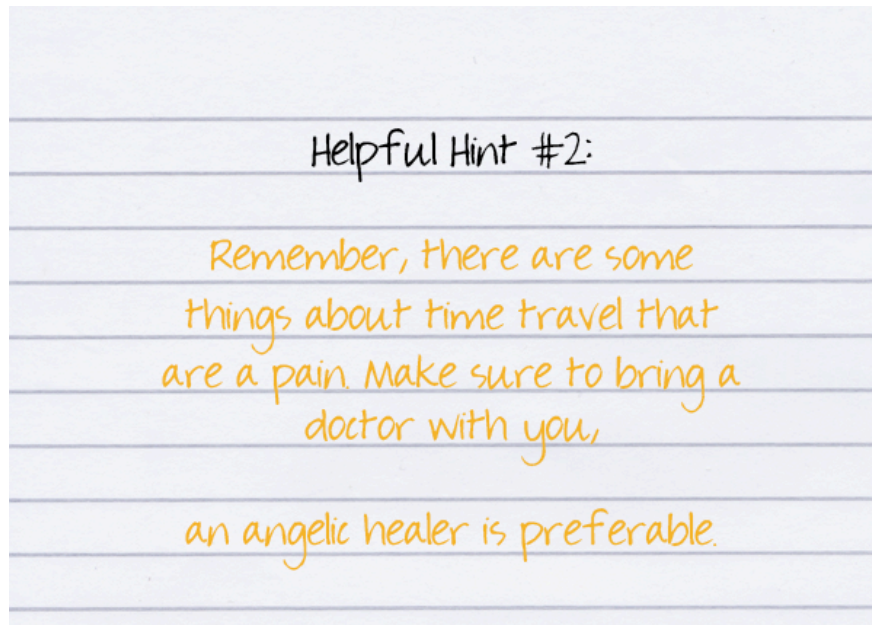 Helpful Hint #2:
Remember, there are some
things about time travel that
are a pain. Make sure to bring a
doctor with you,
an angelic healer is preferable.